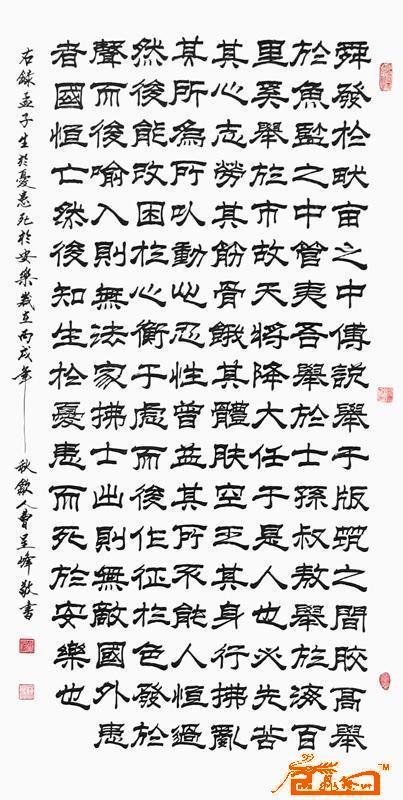 舜發於畎亩之中傅說舉于版筑之間胶鬲舉
於魚鹽之中管夷吾舉於士孫叔敖舉於海百
里奚舉於市故天將降大任于是人也必先苦
其心志勞其筋骨餓其體肤空乏其身行拂亂
其所為所以動心忍性曾益其所不能人恒過
然後能改困於心衡于慮而後作征於色發於
聲而後喻入則無法家拂士出則無敵國外患
者國恒亡然後知生於憂患而死於安樂也
右錄孟子生於憂患死於安樂歲在丙戌年秋歙人曹呈峰敬書